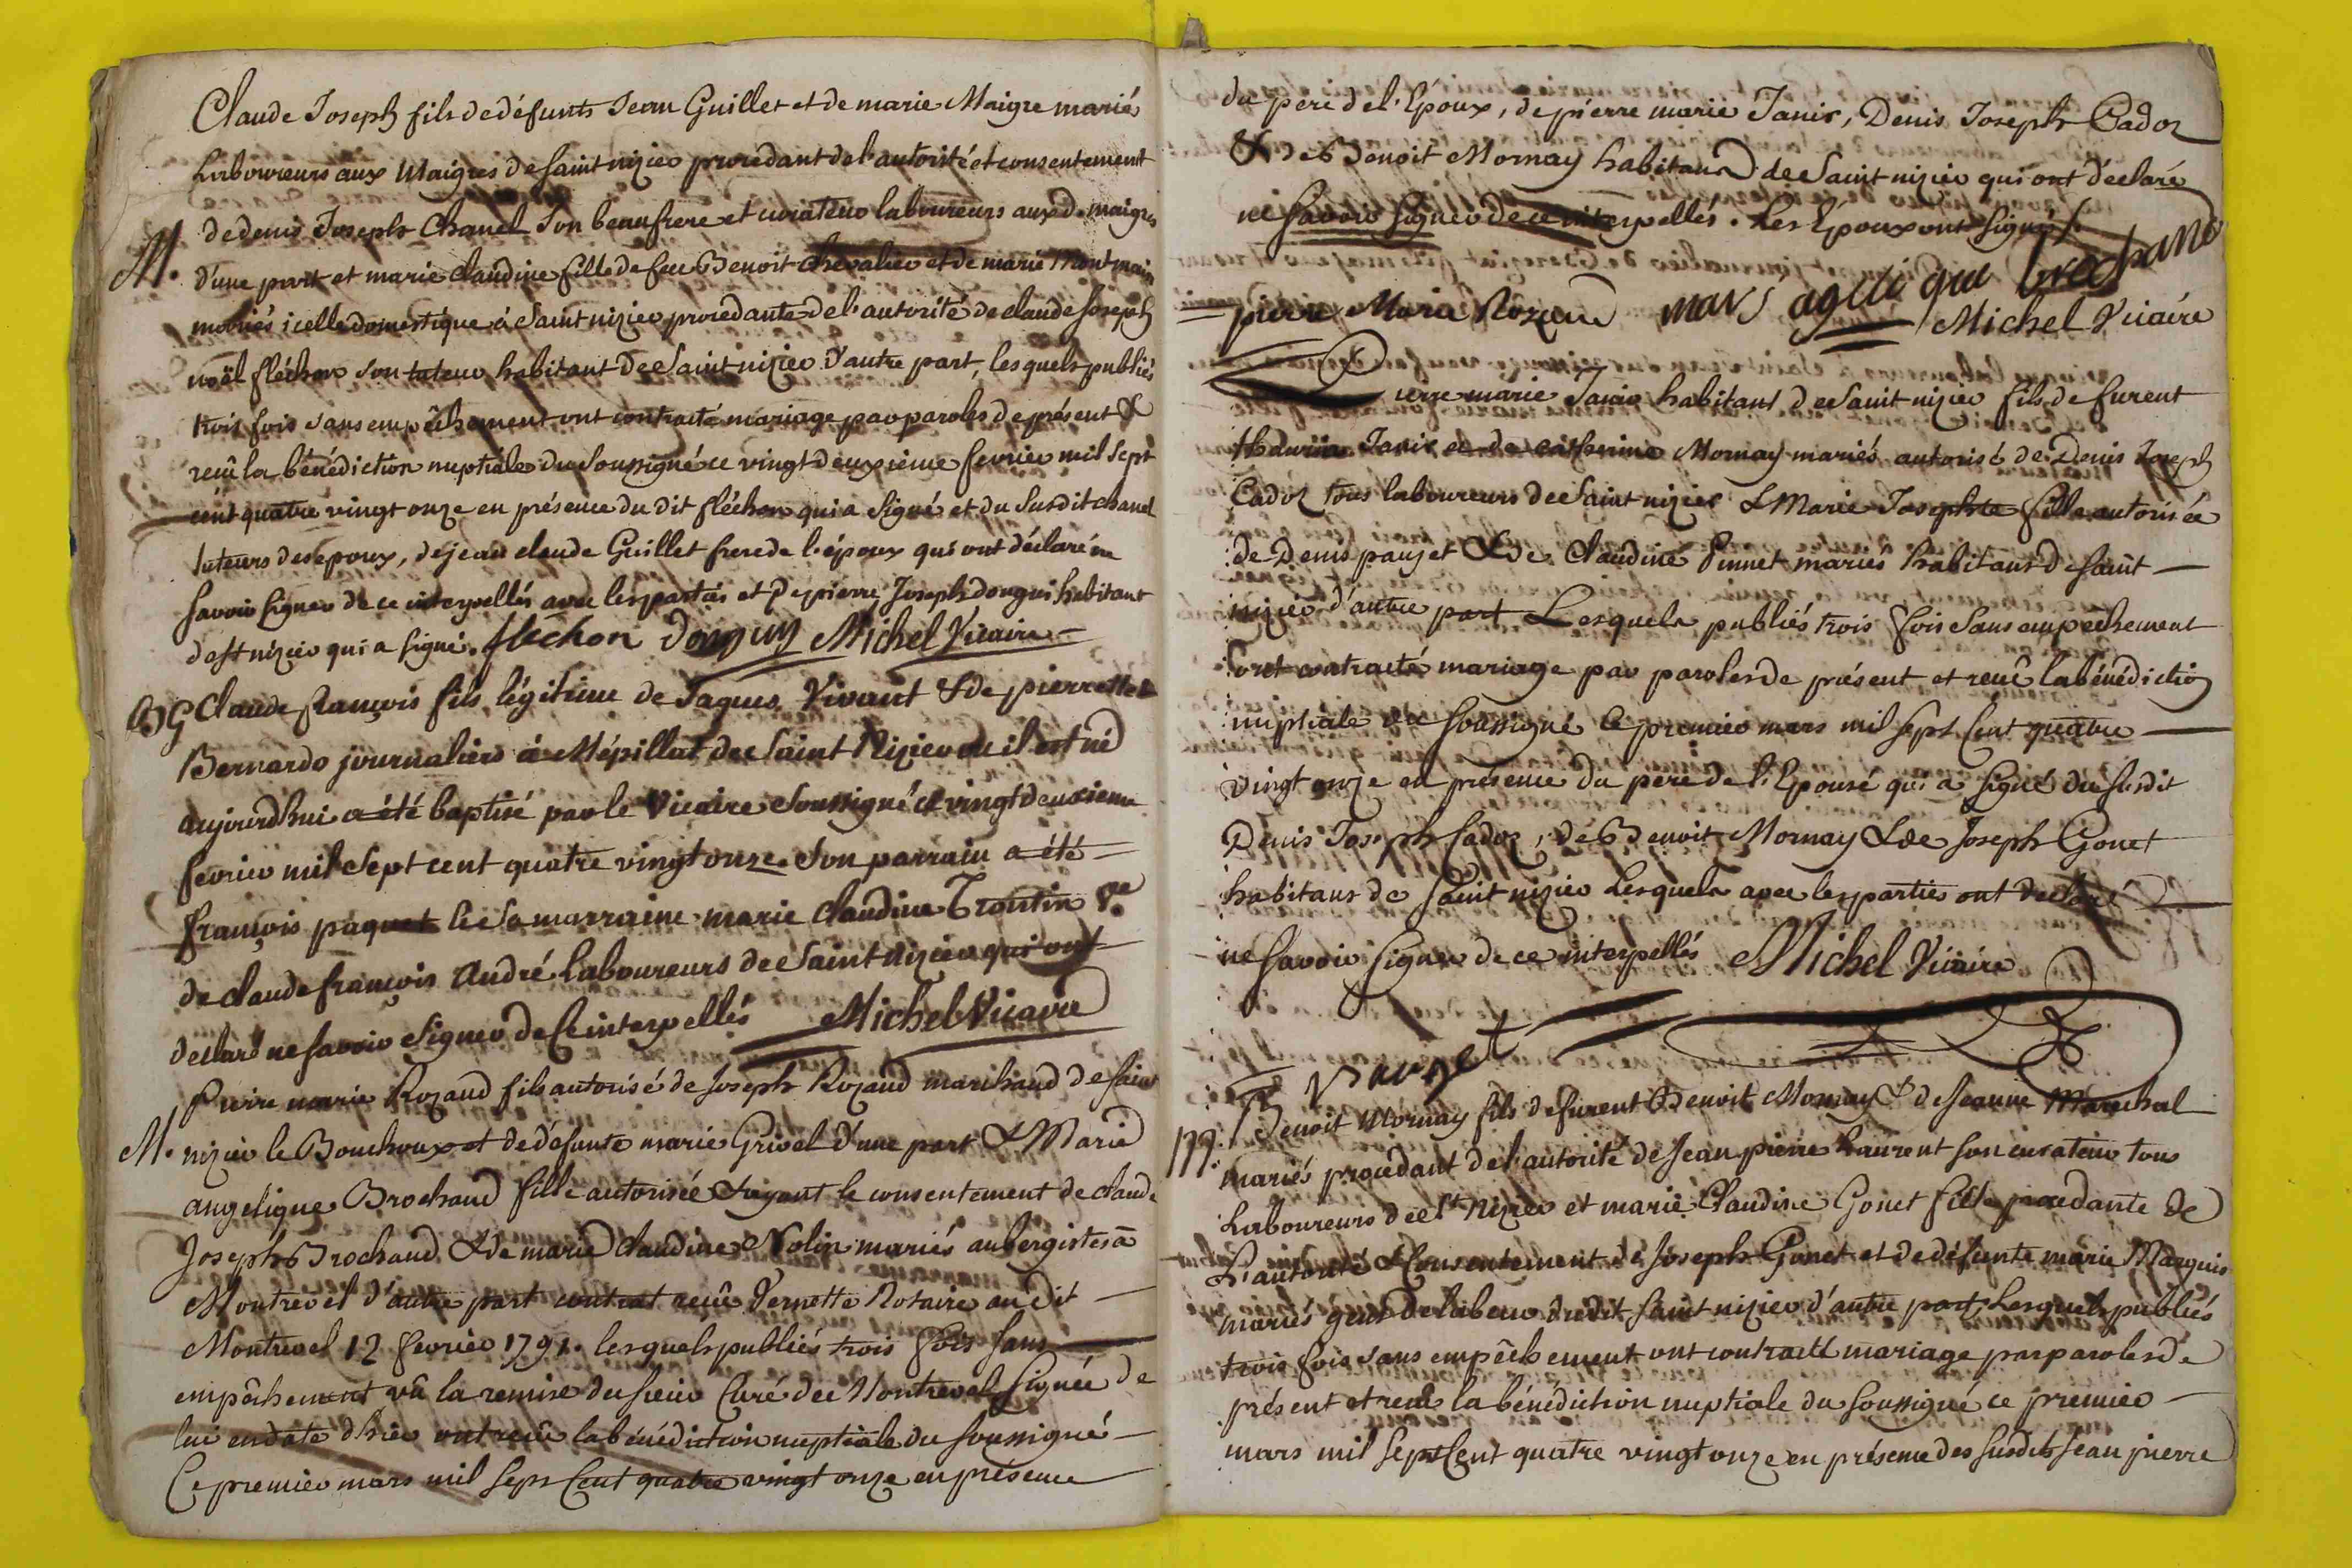 Claude Joseph fils de défunts Jean Guillet et de marie Maigre mariés
Laboureurs aux Maigres de saint nizier procedant de l'autorité et consentement
de denis Joseph Chanel son beaufrere et curateur laboureurs aux d. maigres
M. d'une part et marie claudine fille de feu Benoit chevalier et de marie Montmain
mariés icelle domestique à Saint nizier procedante de l'autorité de claude Joseph
noël fléchon son tuteur habitant de Saint nizier d'autre part, lesquels publiés
trois fois sans empêchement ont contracté mariage par paroles de présent &
reçû la bénédiction nuptiale du soussigné ce vingt deuxieme fevrier mil sept
cent quatre vingt onze en présence du dit fléchon qui a signé et du susdit chanel
tuteurs des époux, de jean claude Guillet frere de l'époux qui ont déclaré ne
savoir signer de ce interpellés avec les parties et de pierre Joseph donguy habitant
de st nizier qui a signé. fléchon donguy Michel Vicaire
B G Claude françois fils légitime de Jaques Vivant & de pierrette
Bernardo journaliers à Mépillat de Saint Nizier où il est né
aujourdhui a été baptisé par le Vicaire soussigné ce vingt deuxieme
fevrier mil sept cent quatre vingt onze. Son parrain a été
françois paquet & sa marraine marie claudine Trontin ve
de claude françois André Laboureurs de Saint nizier qui ont
déclaré ne savoir signer de ce interpellés Michel Vicaire
Pierre marie Rozand fils autorisé de Joseph Rozand marchand de saint
M. nizier le Bouchoux et de défunte marie Grivel d'une part & Marie
angelique Brochand fille autorisée & ayant le consentement de claude
Joseph Brochand & de marie claudine Nolin mariés aubergistes à
Montrevel d'autre part contrat reçû Vernette Notaire au dit
Montrevel 12 fevrier 1791. lesquels publiés trois fois sans
empêchement vû la remise du sieur Curé de Montrevel signée de
lui en date d'hier ont reçû la bénédiction nuptiale du soussigné
Ce premier mars mil sept Cent quatre vingt onze en présence
du pere de l'Époux, de pierre marie Janir, Denis Joseph Cador
& de Benoit Mornay habitans de Saint nizier qui ont déclaré
ne savoir signer de ce interpellés. Les Époux ont signé.
pierre Marie Rozand mari brochand
Michel Vicaire
Pierre marie Janir habitant de Saint nizier fils de furent
Janir et de catherine Mornay mariés autorisé de Denis Joseph
Cador tous laboureurs de Saint nizier & Marie Josephte fille autorisée
de Denis pauget & de Claudine Pinnet mariés habitans de saint
nizier d'autre part Lesquels publiés trois fois sans empechement
ont contracté mariage par paroles de présent et reçû la bénédiction
nuptiale du soussigné Ce premier mars mil sept Cent quatre
vingt onze en présence du pere de l'Epouse qui a signé du susdit
Denis Joseph Cador, de Benoit Mornay & de Joseph Gonet
habitans de saint nizier Lesquels avec les parties ont declaré
ne savoir signer de ce interpellés Michel Vicaire
Pauget
Benoit Mornay fils de furent Benoit Mornay & de Jeanne Marechal
M. mariés procedant de l'autorité de Jean pierre Laurent son curateur tous
Laboureurs de st Nizier et marie Claudine Gonet fille procedante de
L'autorité & Consentement de Joseph Gonet et de défunte marie Marquis
mariés gens de labeur du dit saint nizier d'autre part, Lesquels publiés
trois fois sans empêchement ont contracté mariage par paroles de
présent et reçû la bénédiction nuptiale du soussigné ce premier
mars mil sept Cent quatre vingt onze en présence des susdits Jean pierre